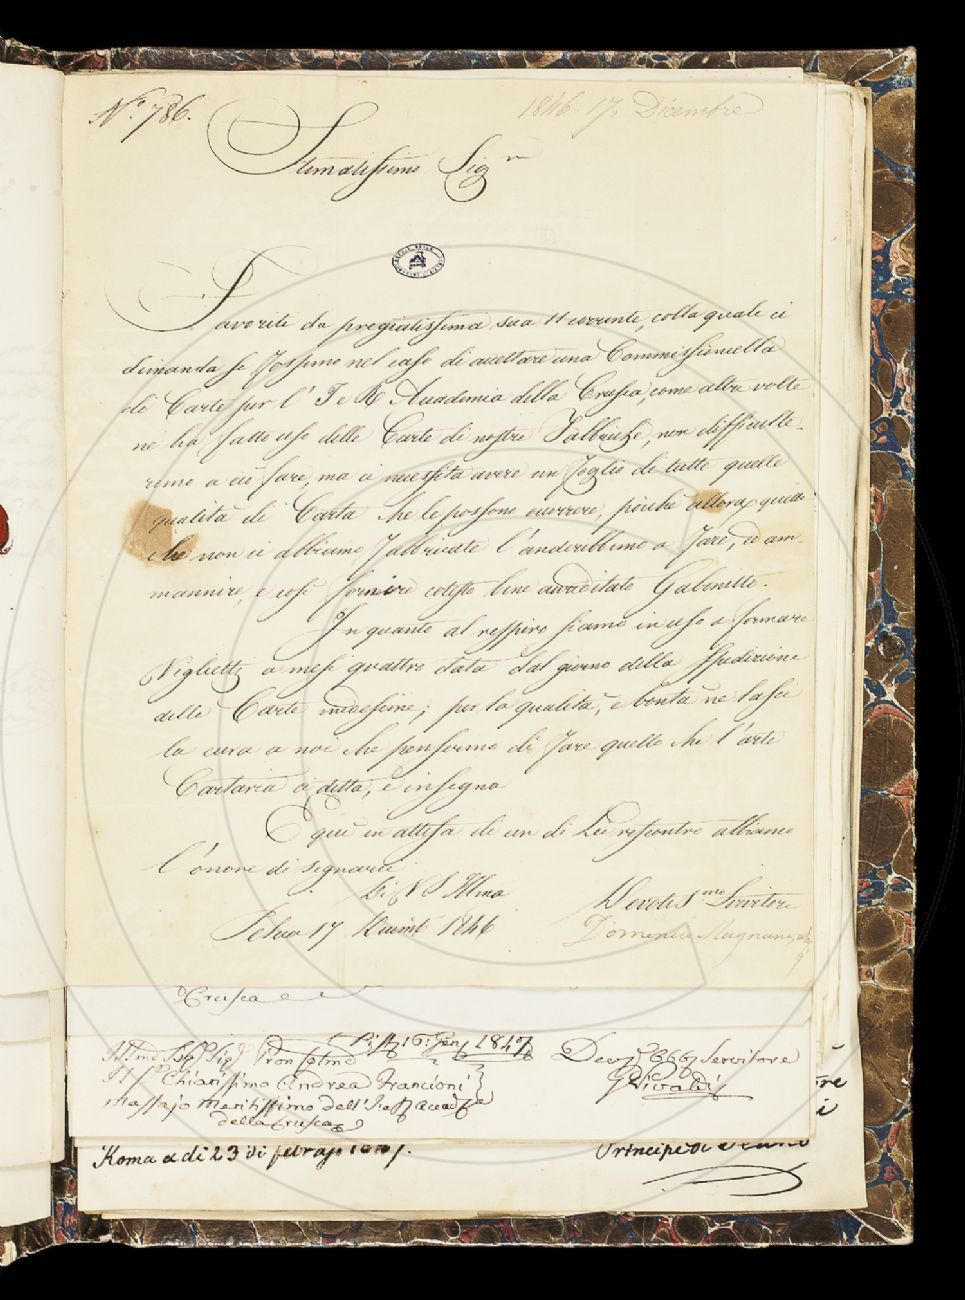 N.º 786.
1846. 17. Dicembre
Stimatissimo Sig.re
Favoriti da pregiatissima sua 11 corrente, colla quale ci
dimanda se fossimo nel caso di accettare una Commissioncella
di Carte per l' I e R Accademia della Crusca, come altre volte
ne ha fatto uso delle Carte di nostre Fabbriche, non difficulte-
remo a ciò fare, ma ci necessita avere un foglio di tutte quelle
qualità di Carta che le possono occorrere, poichè allora quelle
che non ci abbiamo fabbricate l'anderebbemo a fare, ed am
mannire, e così fornire cotesto bene accreditato Gabinetto.
In quanto al respiro siamo in uso a formare
Viglietti a mesi quattro data dal giorno della spedizione
delle Carte medesime; per la qualità, e bontà ne lasci
la cura a noi che penseremo di fare quello che l'arte
Cartaria ci detta, e insegna
E qui in attesa di un di Lei riscontro abbiamo
l'onore di segnarci
Di V S Illma
Devotis.mo Servitore
17 1846
Domenico
Crusca
16: Gen 1847
Servitore
Rivaldi
Chiarissimo Andrea Francioni
Massajo Meritissimo dell'
della Crusca
Roma a di 23 di
Principe di